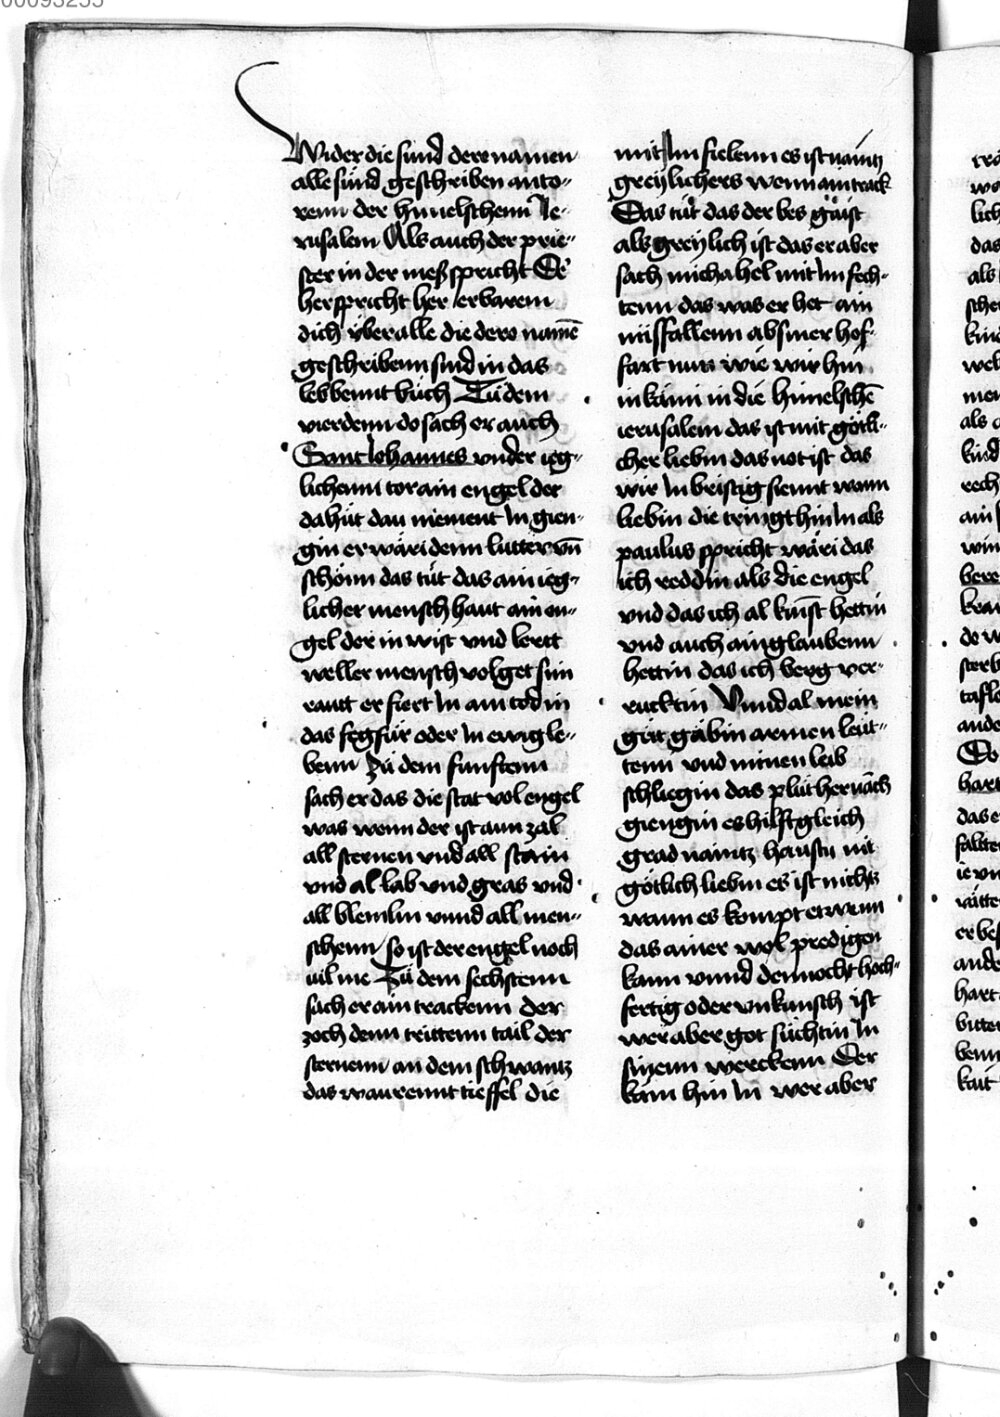 Wider die sünd deren namen
alle sünd geschriben an to-
renn der himelschenn Je-
rusalem Als auch der prie-
ster in der meß spricht Der
her spricht her erbarem
dich über alle die dero namē
geschribenn sind in das
lebbennt büch Zü dem
vierdenn do sach er auch
Sant Johannes under ieg-
lichenn tor ain engel der
da hüt dau niement In gien-
gin er wäri denn lutter vn̄
schönn das tüt das ain ieg-
licher mensch haut ain en-
gel der in wist vnd lertt
weller mensch volget sim
rautt er fiert In am tod in
das fegfür oder In ewig le-
benn Zü dem funfftenn
sach er das die stat vol engel
was wenn der ist aun zal
all sternen vnd all stäin
vnd al lab vnd gras vnd
all blemlin vnnd all men-
schenn so ist der engel noch
uil me Zü dem sechstenn
sach er ain trackenn der
zoch denn trittenn tail der
sternenn an dem schwantz
das waurennt tieffel die
mit Im fielenn es ist naintz
greylichers wenn ain track
Das tüt das der bes gäist
als greylich ist das er aber
sach michahel mit Im fech-
tenn das was er het ain
missfallenn ab siner hof-
fart nun wie wir hin
in käm in die himelschē
ierusalem das ist mit götli-
cher liebin das not ist das
wir In bristig siennt wann
liebin die tringt hin In als
paulus spricht wäri das
ich reddin als die engel
vnd das ich al kunst hettin
vnd auch ain glaubenn
hettin das ich berg ver-
rucktin Vnnd al mein
güt gäbin armen leüt-
tenn vnd minen leib
schliegin das plüt hernäch
giengin es hilft gleich
grad naintz haustu nit
götlich liebin es ist nichtz
wann es kompt etwenn
das ainer wol predigen
kann vnnd dennocht hoch-
fertig oder vnkünsch ist
wer aber got süchtin In
sinenn werckenn Der
käm hin In wer aber